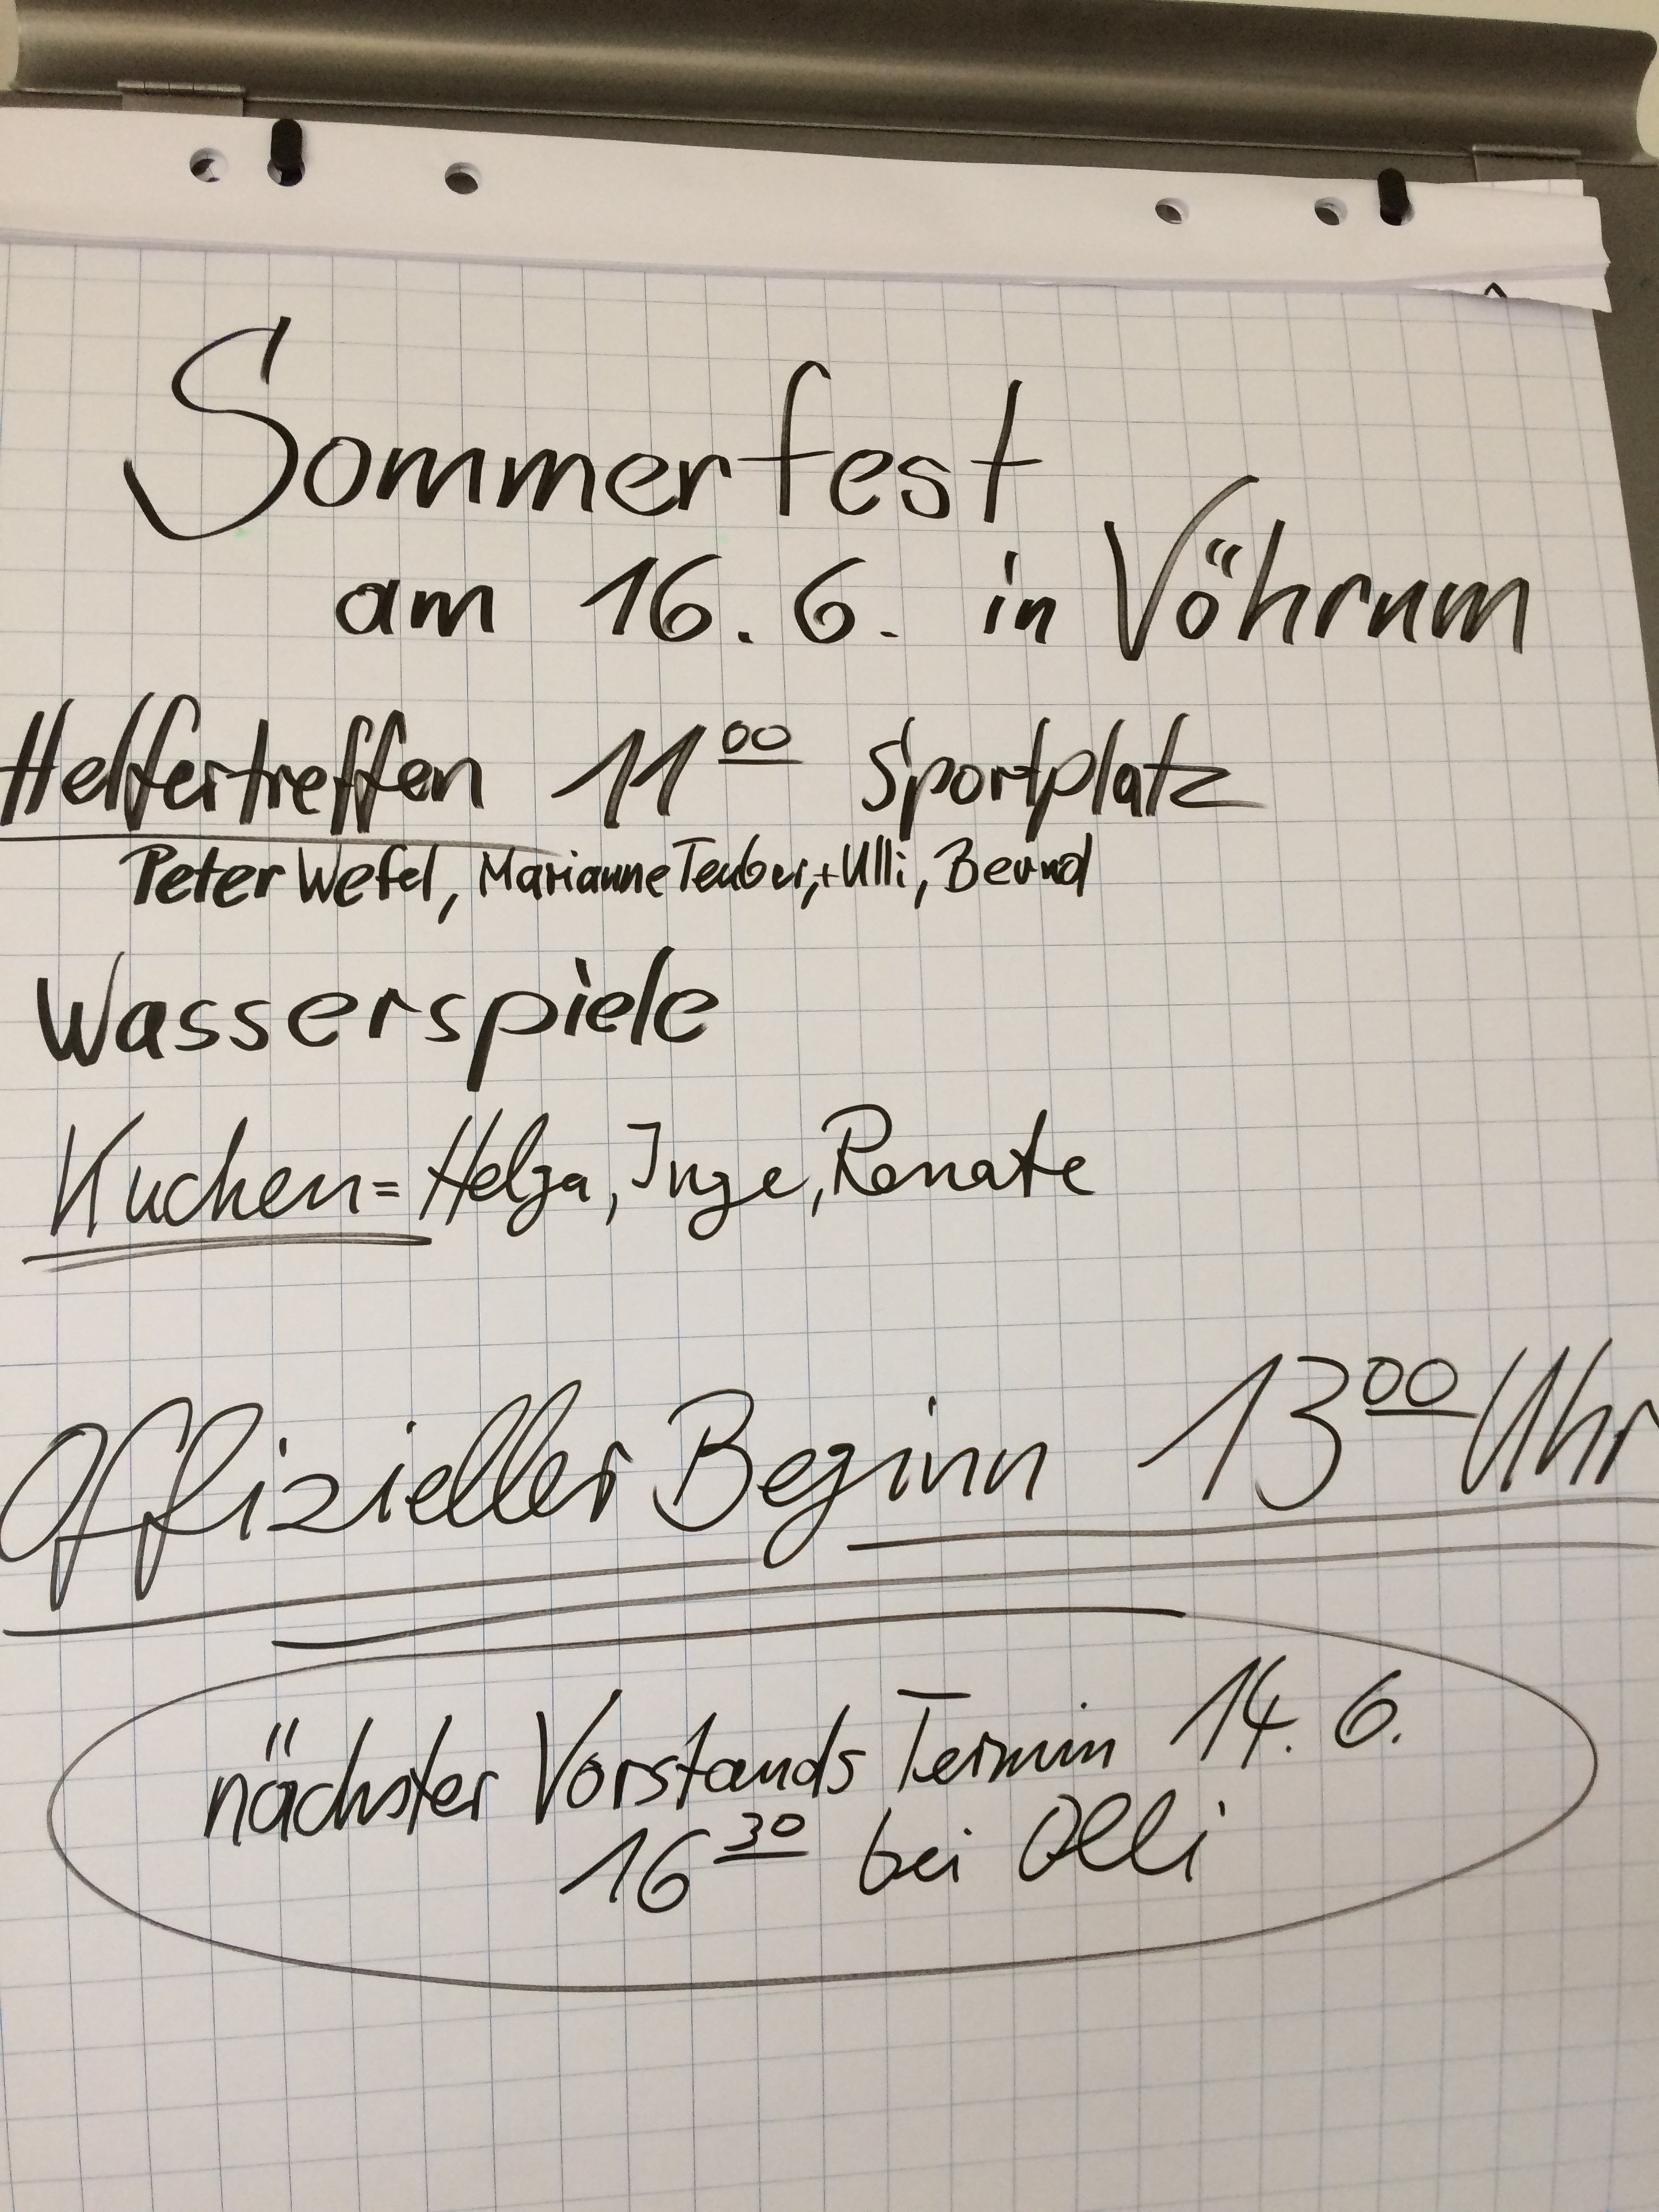 Sommerfest
am 16.6. in Vöhrum
Helfertreffen 11 00 Sportplatz
Peter Wefel, Marianne Teuber,+Ulli, Bernd
Wasserspiele
Kuchen= Helga, Inge, Renate
Offizieller Beginn 13 00 Uhr
nächster Vorstands Termin 14.6.
16 30 bei Olli